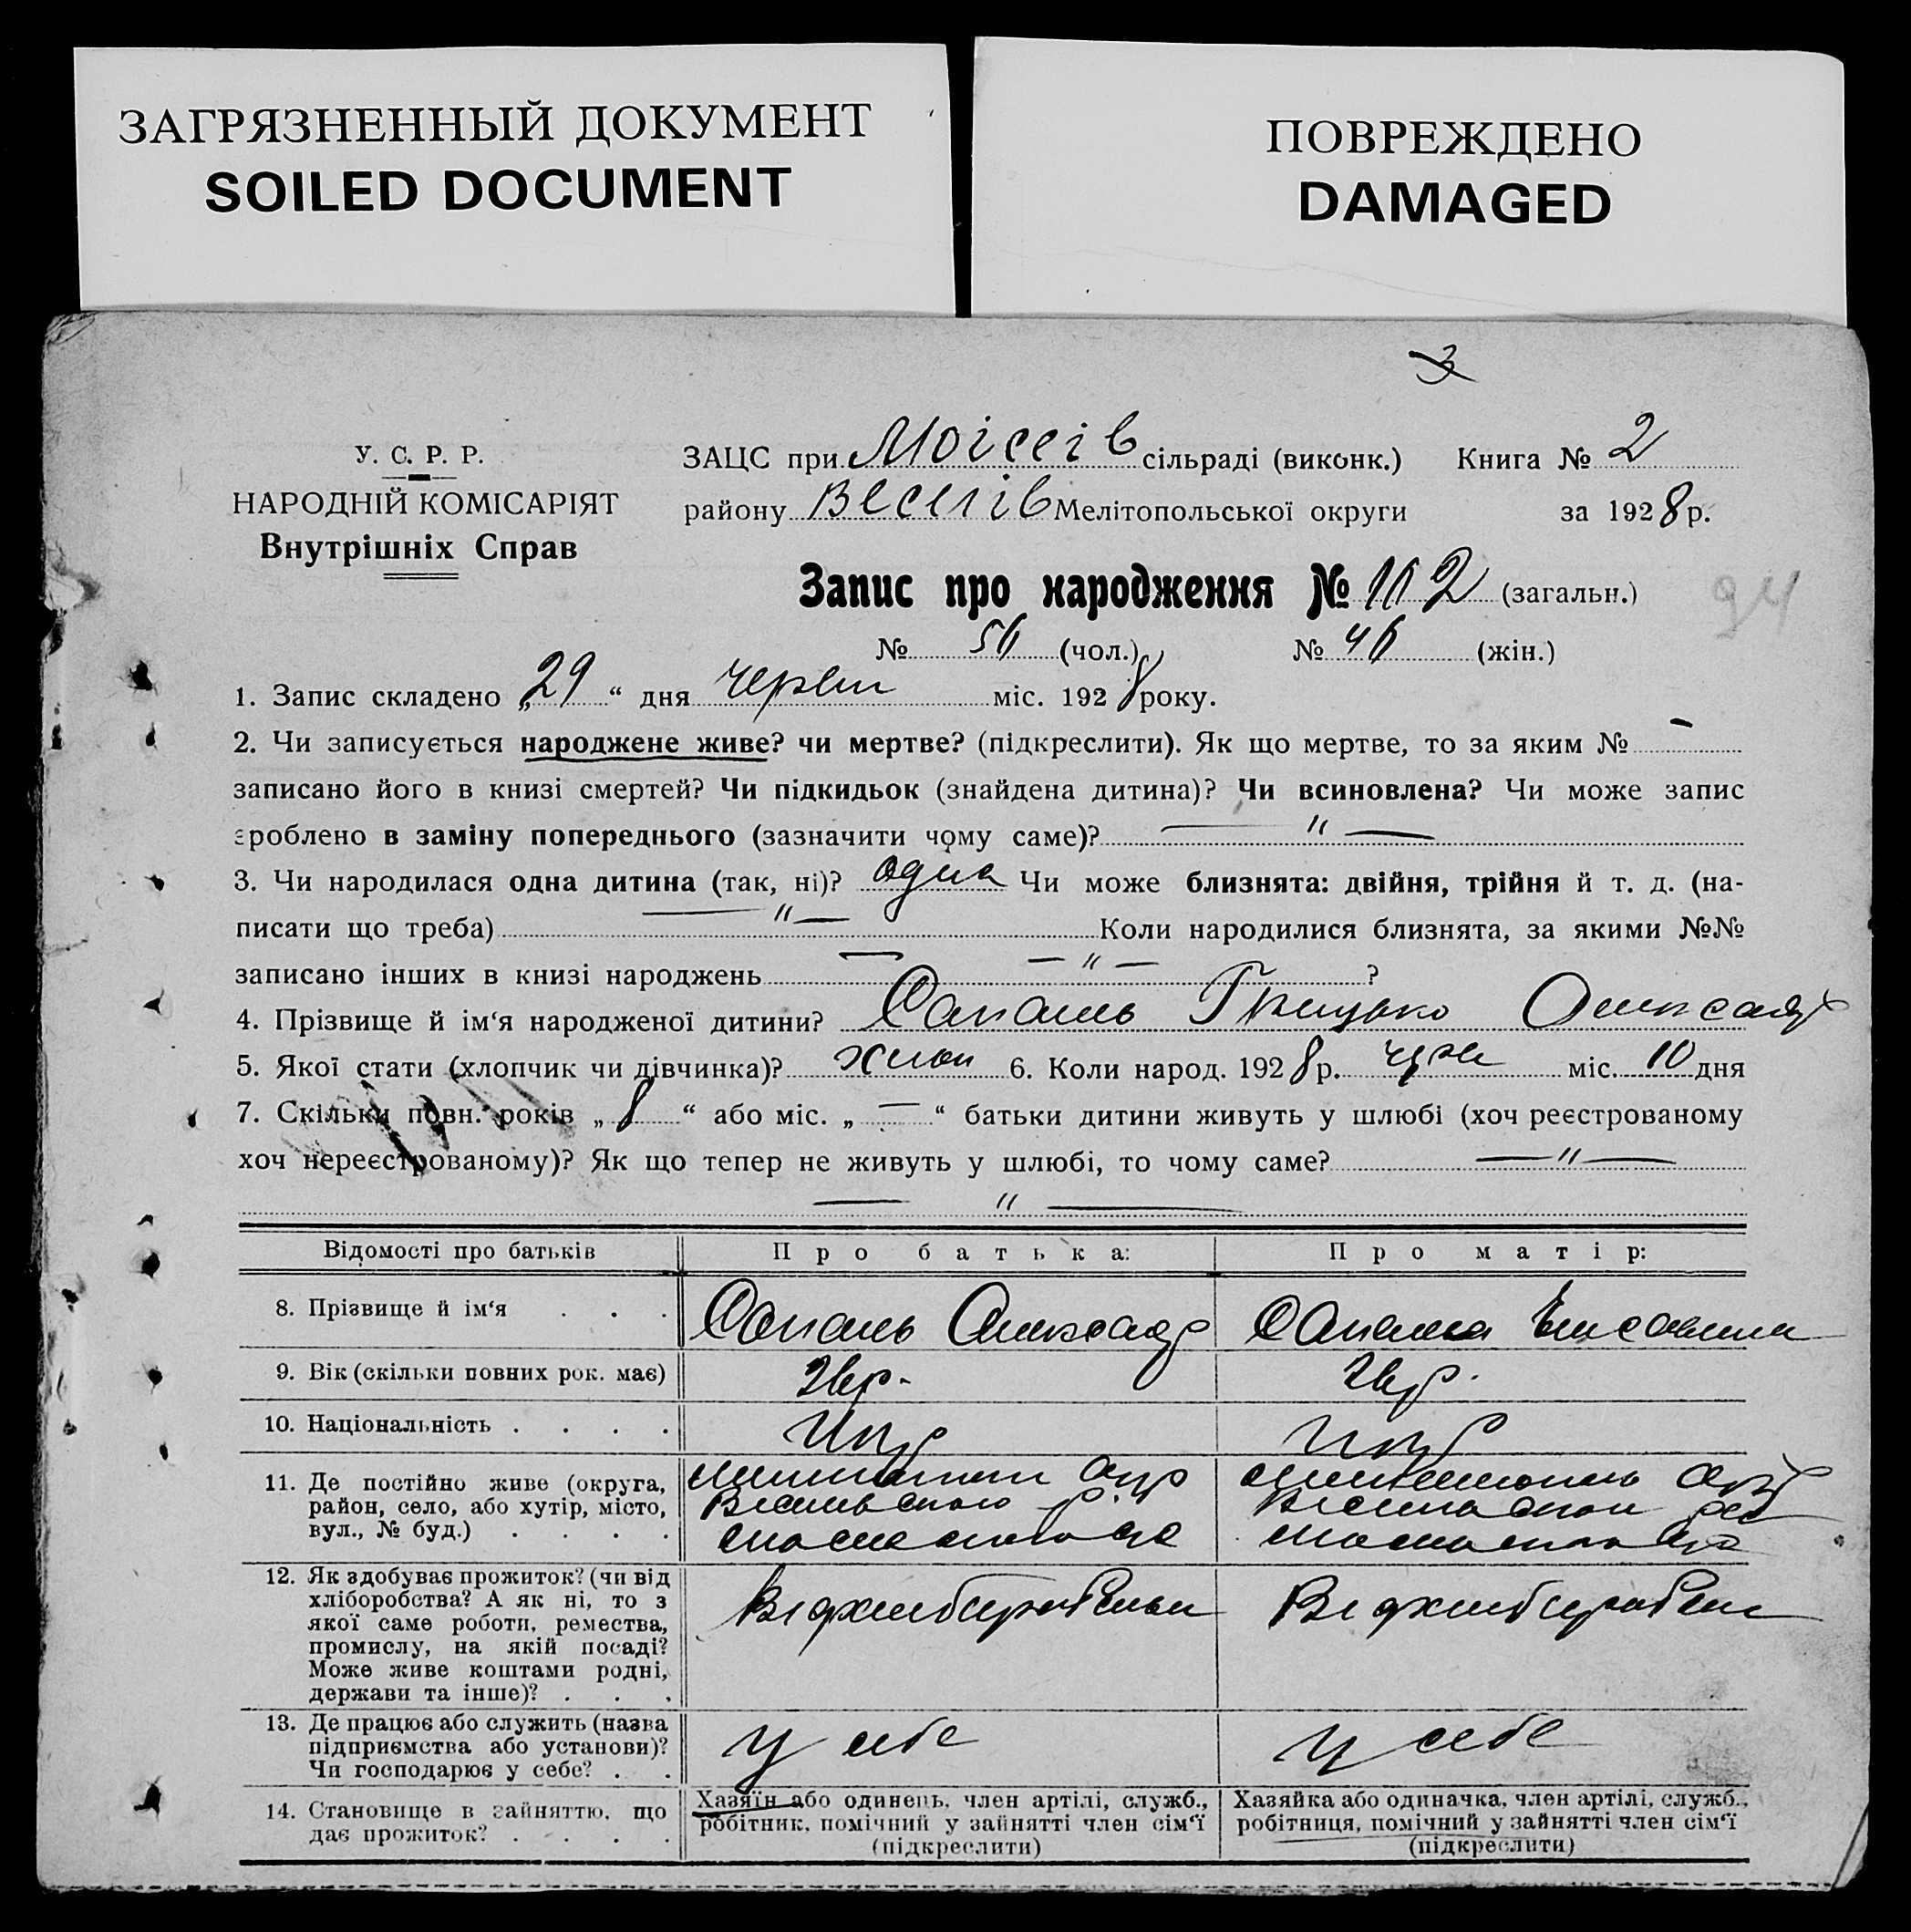 ЗАГРЯЗНЕННЫЙ ДОКУМЕНТ
SOILED DOCUMENT
ПОВРЕЖДЕНО
DAMAGED
3
У. С. Р. Р.
НАРОДНІЙ КОМІСАРІЯТ
Внутрішніх Справ
ЗАЦС при Моісеів сільраді (виконк.) Книга № 2
району Веселів Мелітопольської округи за 1928 р.
Запис про народження № 102 (загальн.)
94
№ 56 (чол.) № 46 (жін.)
1. Запис складено „29“ дня черв міс. 1928 року.
2. Чи записується народжене живе? чи мертве? (підкреслити). Як що мертве, то за яким № —
записано його в книзі смертей? Чи підкидьок (знайдена дитина)? Чи всиновлена? Чи може запис
зроблено в заміну попереднього (зазначити чому саме)? — " —
3. Чи народилася одна дитина (так, ні)? одна Чи може близнята: двійня, трійня й т. д. (на-
писати що треба) — " — Коли народилися близнята, за якими №№
записано інших в книзі народжень — — " — ?
4. Прізвище й ім‘я народженої дитини? Грицько Олександ
5. Якої стати (хлопчик чи дівчинка)? хлоп 6. Коли народ. 1928 р. черв міс. 10 дня
7. Скільки повн. років „8“ або міс. „—“ батьки дитини живуть у шлюбі (хоч реєстрованому
хоч нереєстрованому)? Як що тепер не живуть у шлюбі, то чому саме? — " —
— " —
Відомості про батьків Про батька: Про матір:
8. Прізвище й ім‘я . . . Олександр
9. Вік (скільки повних рок. має)
10. Національність . . . . Укр Укр
11. Де постійно живе (округа,
район, село, або хутір, місто,
вул., № буд.) . . . .
12. Як здобуває прожиток? (чи від
хліборобства? А як ні, то з
якої саме роботи, ремества,
промислу, на якій посаді?
Може живе коштами родні,
держави та інше)? . . .
13. Де працює або служить (назва
підприємства або установи)?
Чи господарює у себе? . .
у себе у себе
14. Становище в зайняттю, що
дає прожиток? . . . .
Хазяїн або одинець, член артілі, служб.,
робітник, помічний у зайнятті член сім‘ї
(підкреслити)
Хазяйка або одиначка, член артілі, служб.,
робітниця, помічний у зайнятті член сім‘ї
(підкреслити)